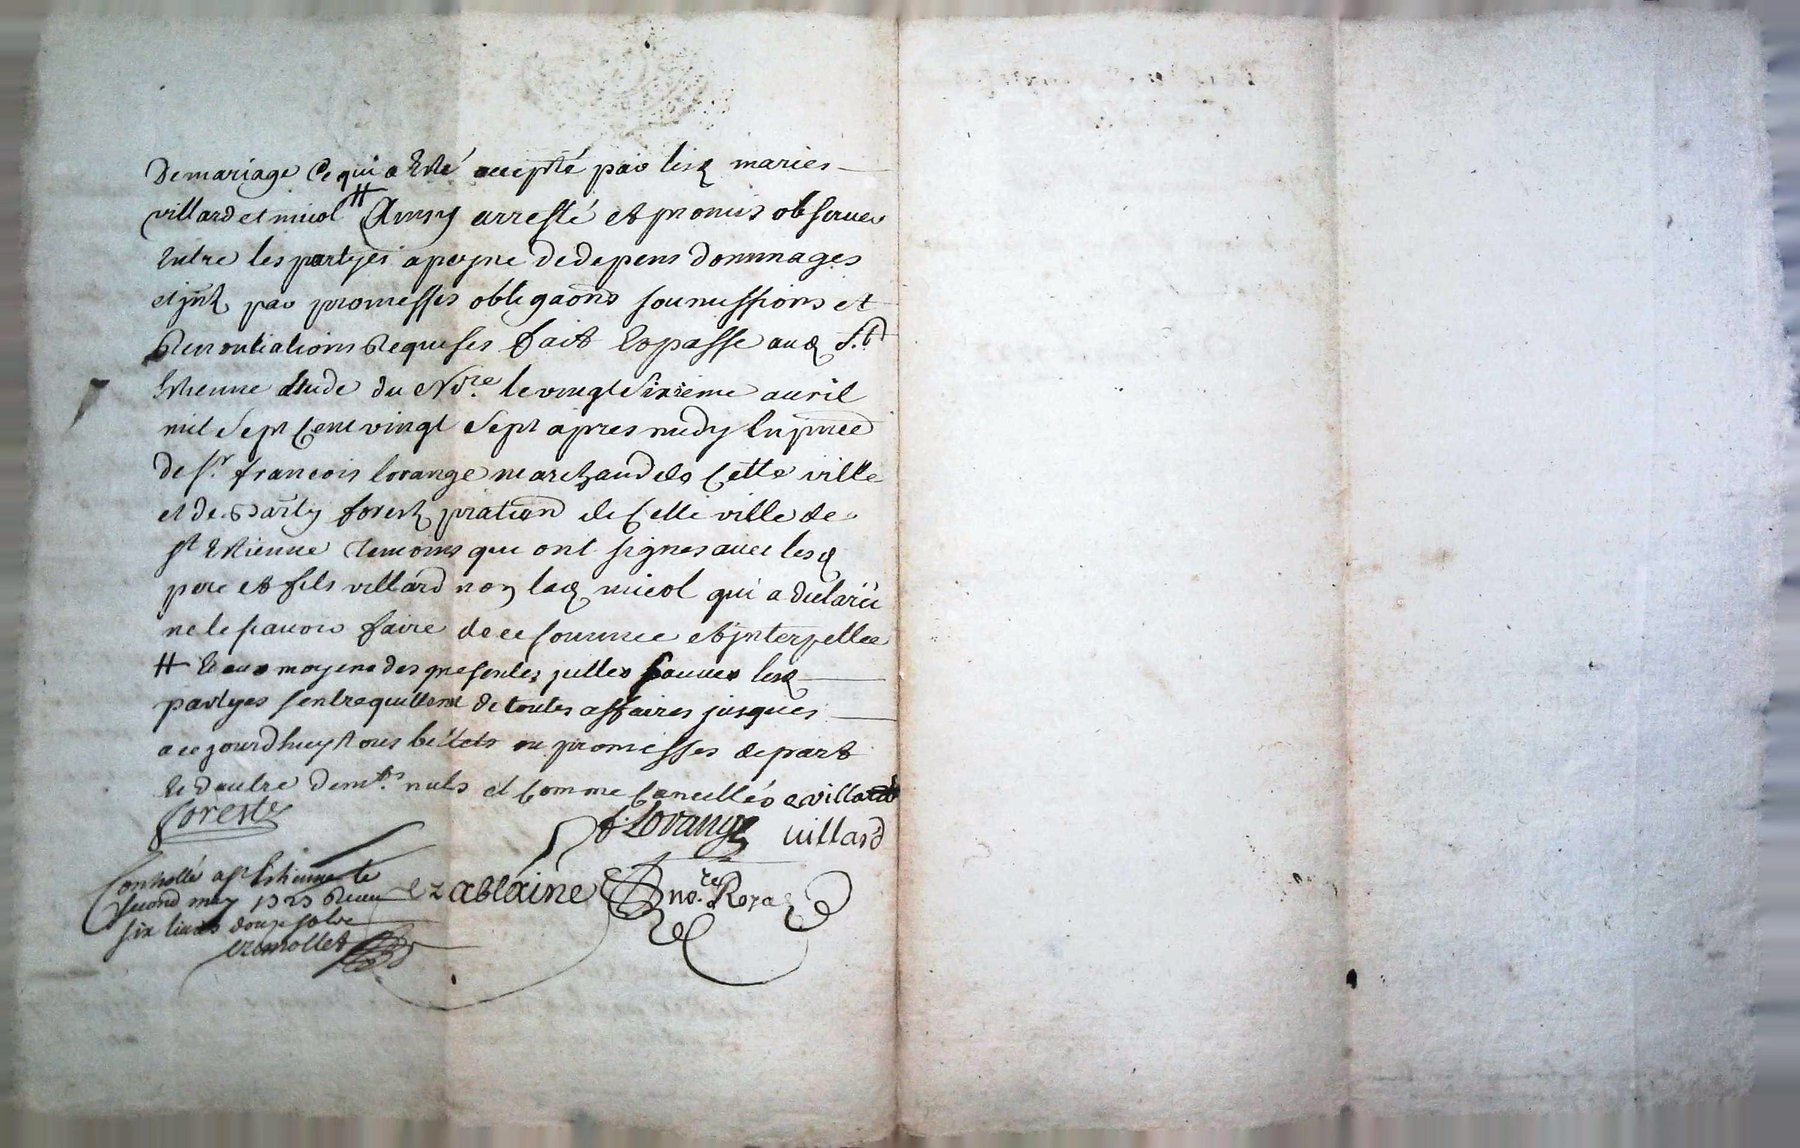 De mariage Ce qui a Esté accepté par lesd maries
villard et micol # Ainsy arresté et promis observer
Entre les partyes a peyne de depens dommages
et jnt par promesses obligaons soumissions et
Renontiations Requises fait Et passe aud St
Estienne étude du Nre le vingt Sixieme avril
mil Sept Cent vingt Sept apres midy En pnce
de sr francois lorange marchand de Cette ville
et de forest praticien de Cette ville de
st Estienne temoins qui ont signes avec lesd
pere et fils villard non lad micol qui a declaré
ne le scavoir faire de ce sommee et jnterpellee
# Et au moyene des presentes jcelles sauves lesd
partyes sentrequittent de toutes affaires jusques
a ce jourdhuy tous billets ou promesses de part
Et dautre demts nuls et Comme Cancellés e villard
forest
f. Lorange villard
Controllé a st Estienne le
second may 1727 Receu
six livres douze sols
ezablaine nore Roya